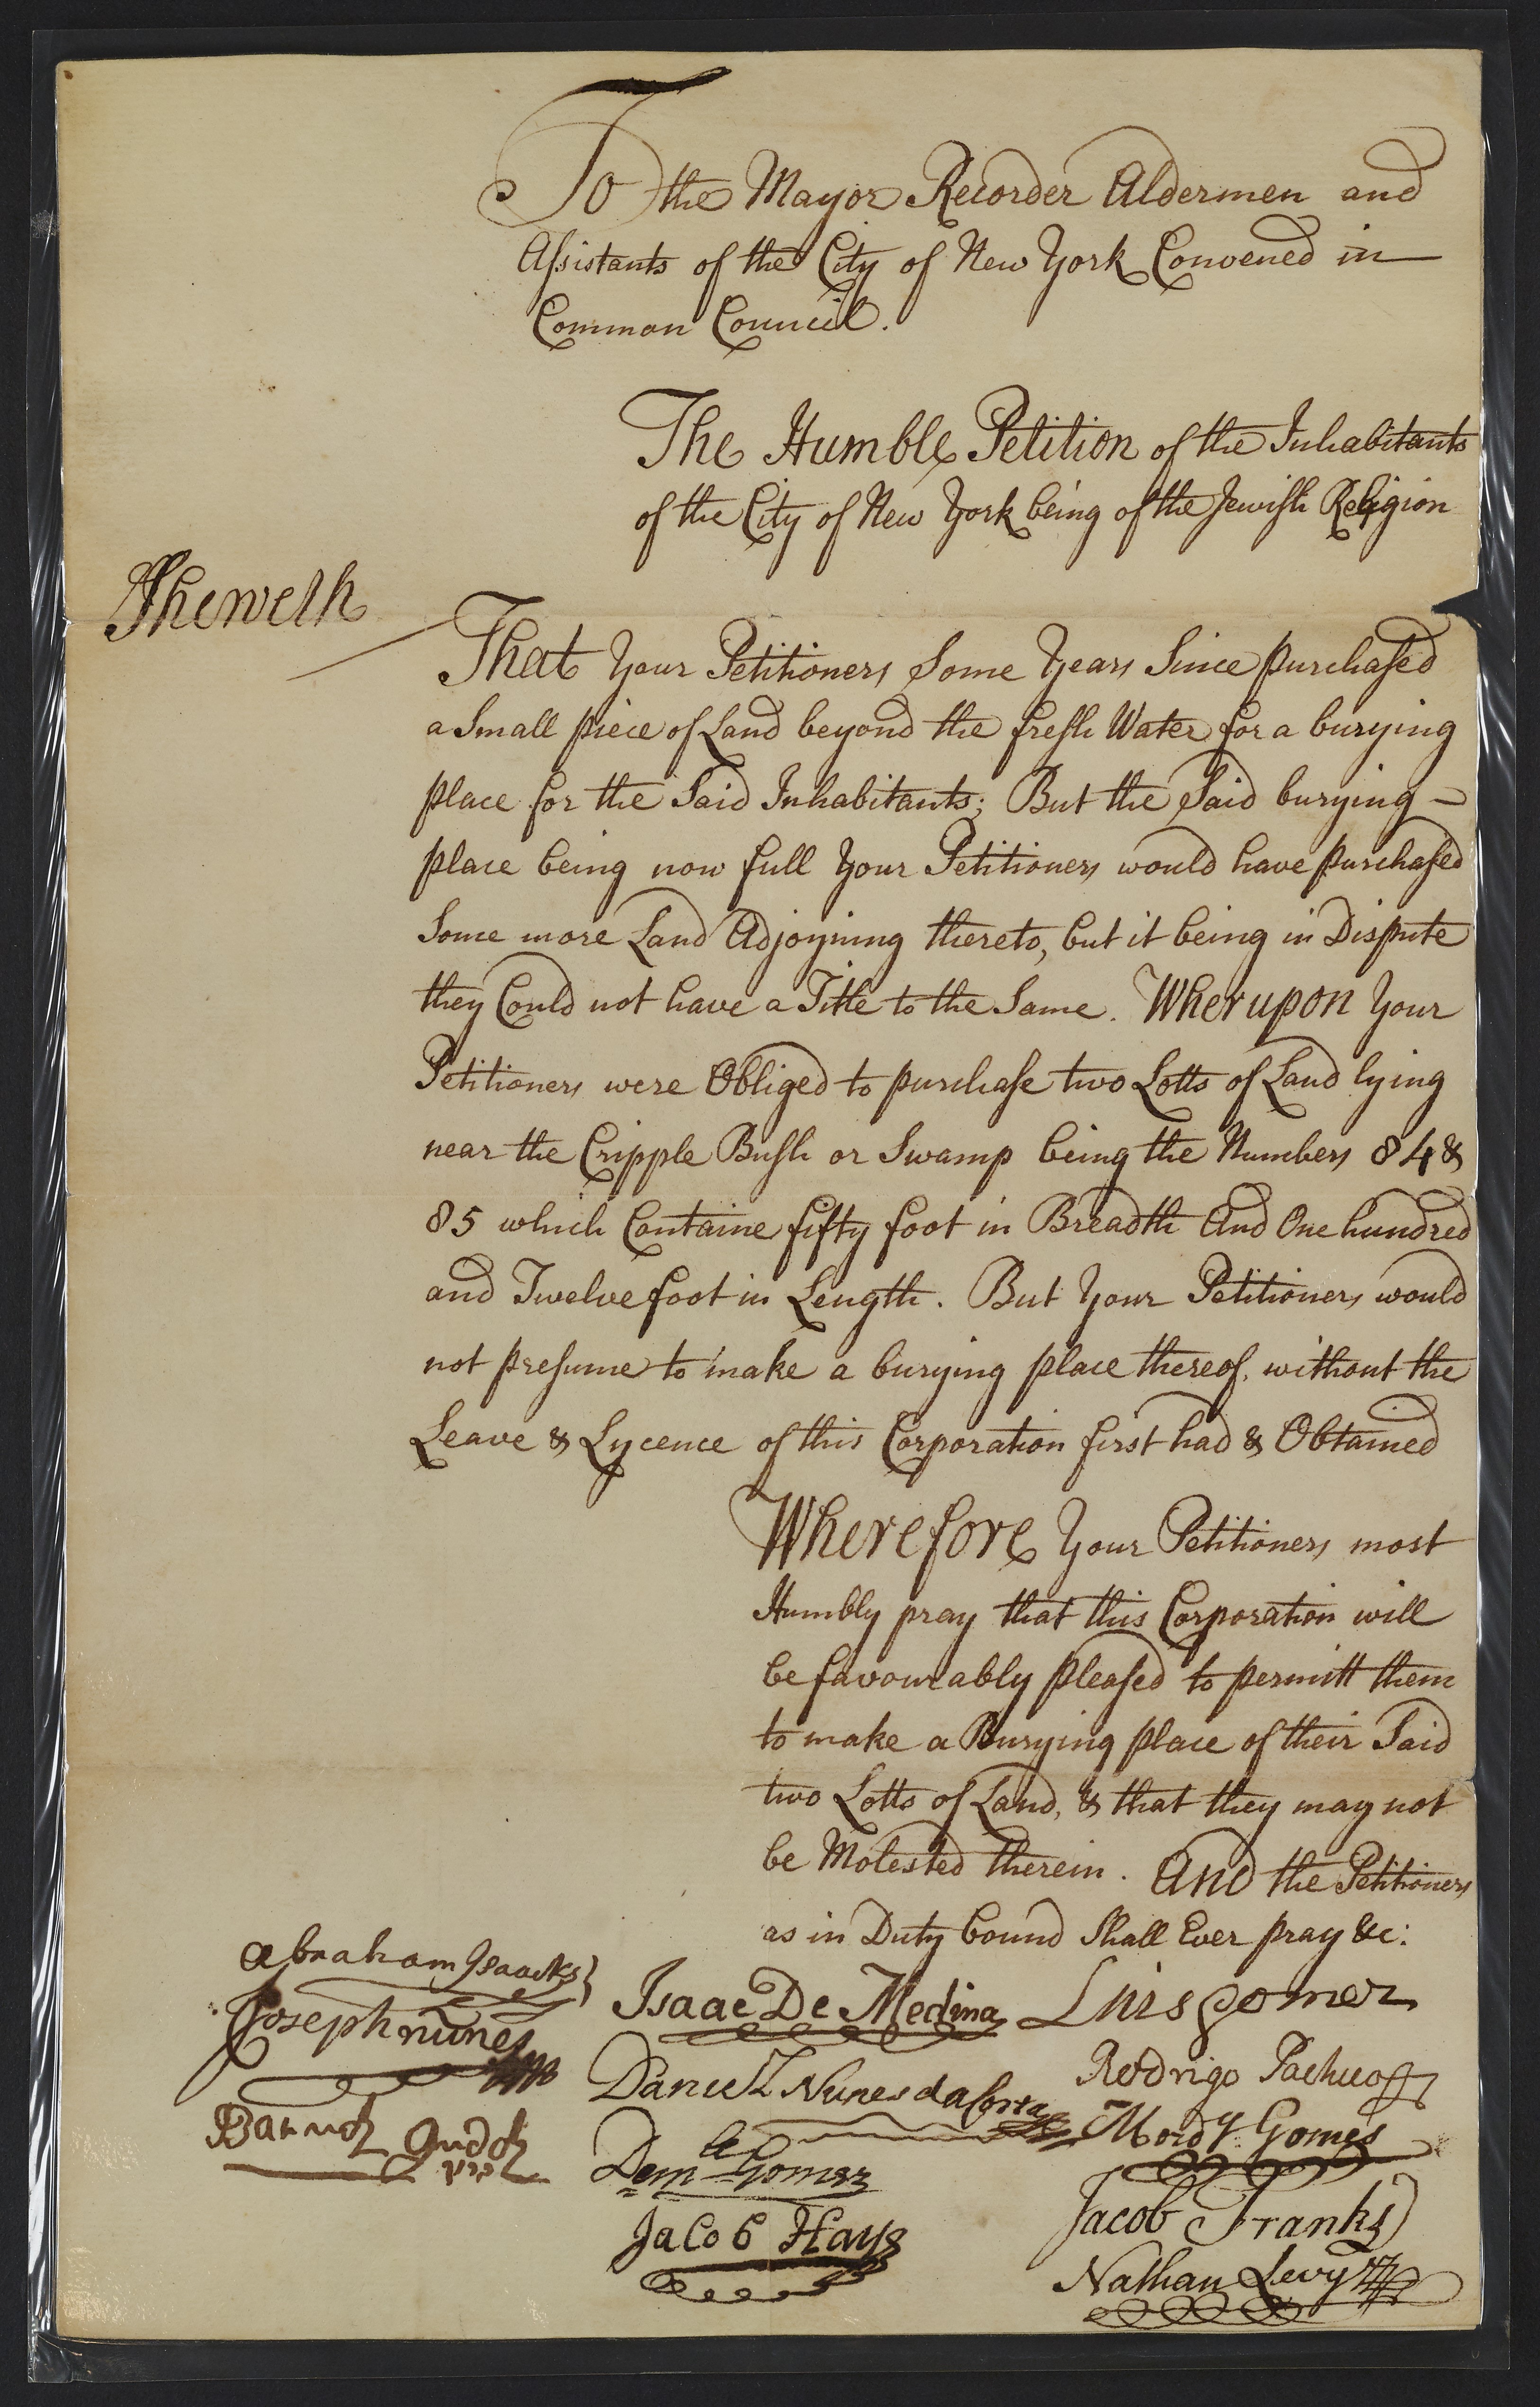 To the Mayor Recorder Aldermen and
Assistants of the City of New York Convened in
Common Council.
The Humble Petition of the Inhabitants
of the City of New York being of the Jewish Religion
Sheweth
That Your Petitioners Some Years Since purchased
a Small piece of Land beyond the fresh Water for a burying
place for the Said Inhabitants; But the Said burying -
place being now full Your Petitioners would have purchased
Some more Land Adjoyning thereto, but it being in Dispute
they Could not have a Title to the Same. Wherupon Your
Petitioners were Obliged to purchase two Lotts of Land lying
near the Cripple Bush or Swamp being the Numbers 84 &
85 which Containe fifty foot in Breadth And One hundred
and Twelve foot in Length. But Your Petitioners would
not presume to make a burying place thereof, without the
Leave & Lycence of this Corporation first had & Obtained
Wherefore Your Petitioners most
Humbly pray that this Corporation will
be favourably pleased to permitt them
to make a Burying place of their Said
two Lotts of Land, & that they may not
be Molested therein. And the Petitioners
as in Duty bound Shall Ever pray &c:
Abraham Isaacks
Joseph nunes
Baruch Judah
Isaac De Medina
Daniel Nunes da Costa
Danl Gomez
Jacob Hays
Luis gomez
Rodrigo Pacheco
Mordy Gomes
Jacob Franks
Nathan Levy